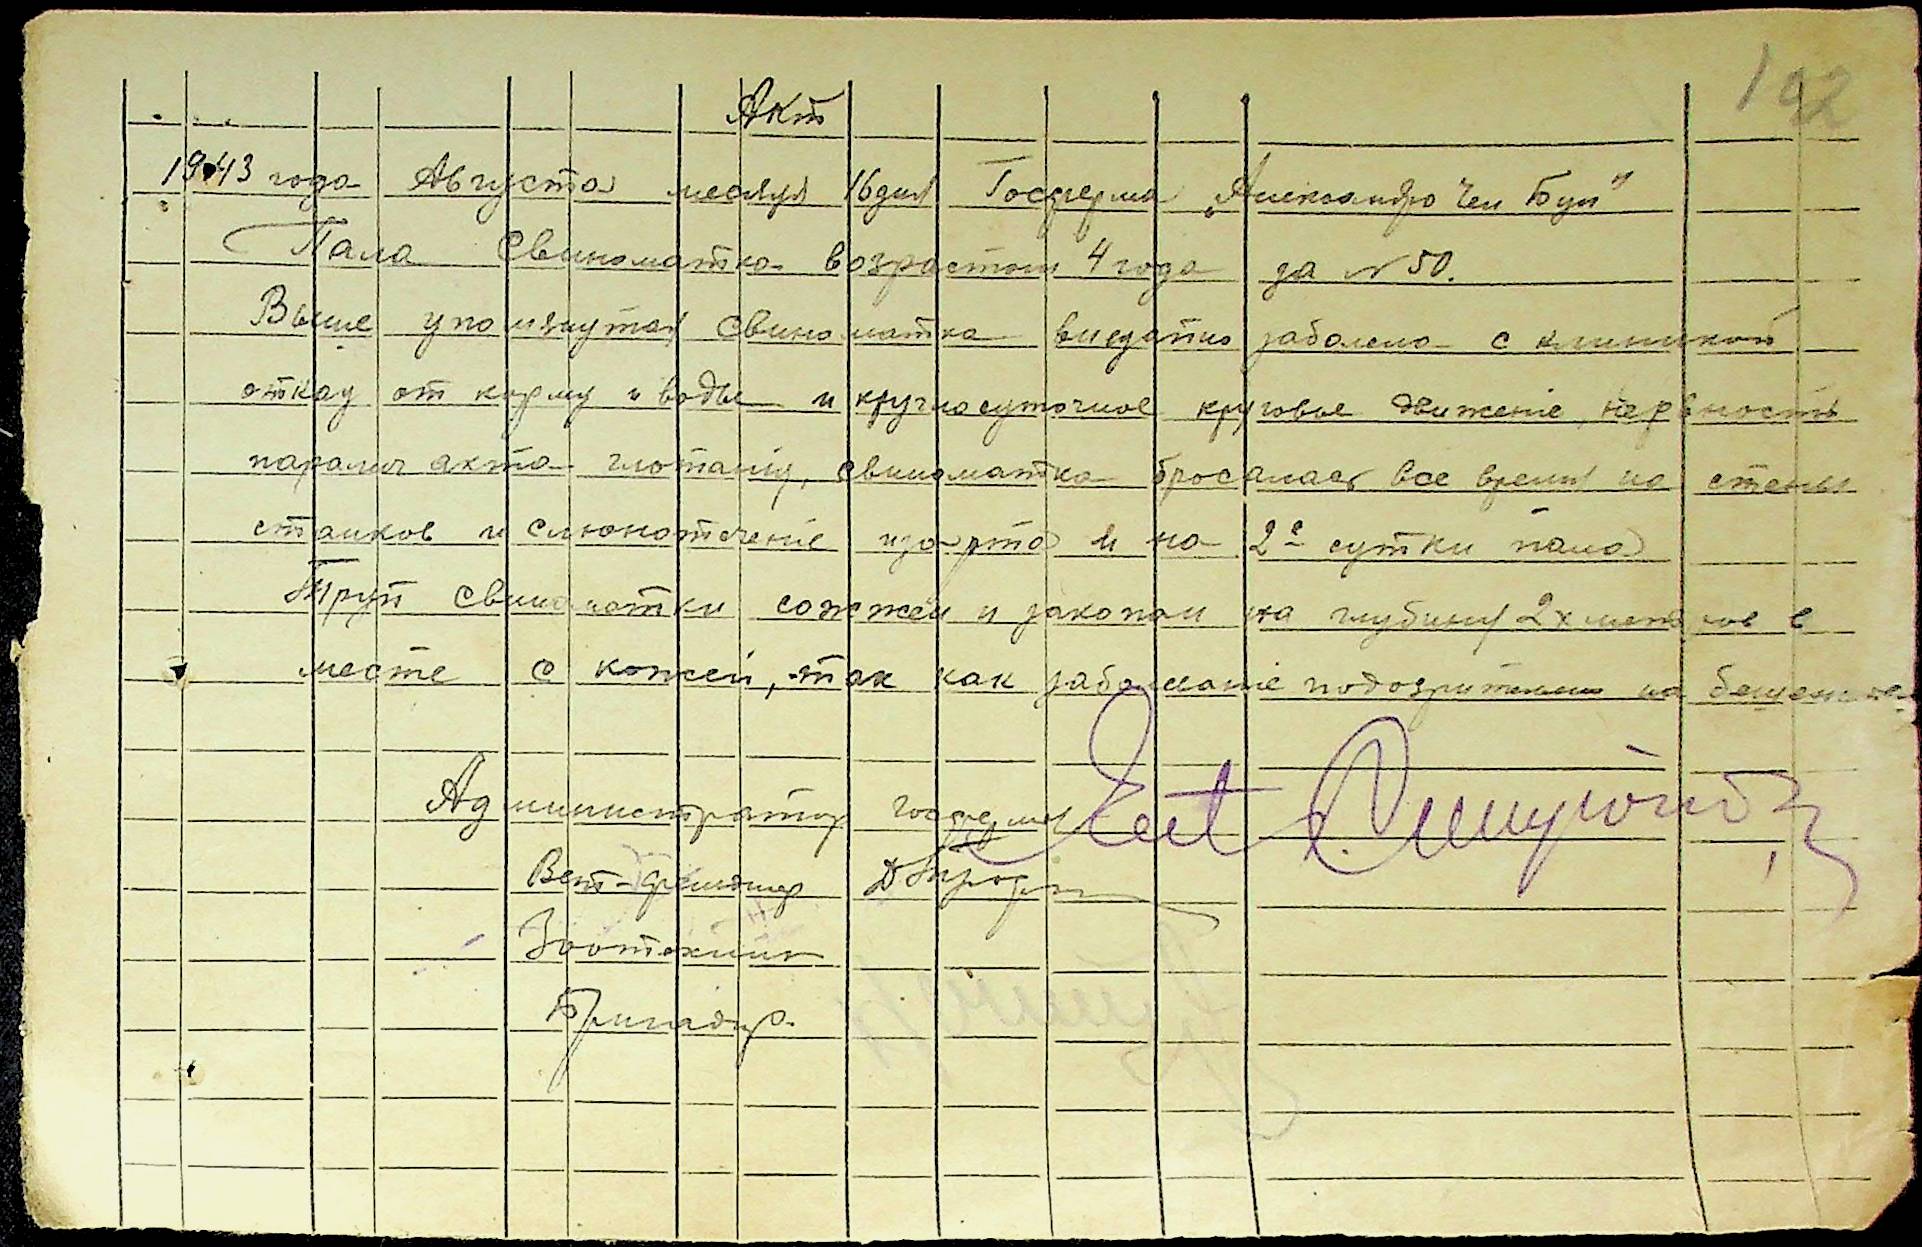 192
Акт
1943 года Августа месяця 16 дня Госферма „Александро Чел Бун"
Пала Свиноматка возрастом 4 года за № 50.
Выше упомянутая свиноматка внезапно заболела с клиникой
отказ от корму и воды и круглосуточное круговое движение, нервность
паралич акта глотания, свиноматка бросалась все время на стены
станков и слюнотечение изо рта и на 2е сутки пала
Труп свиноматки сожжен и закопан на глубину 2х метров в
месте с кожей, так как заболевание подозрительно на бешенство
Администратор госфермы
Вет-фельдшер
Зоотехник
Бригадир.